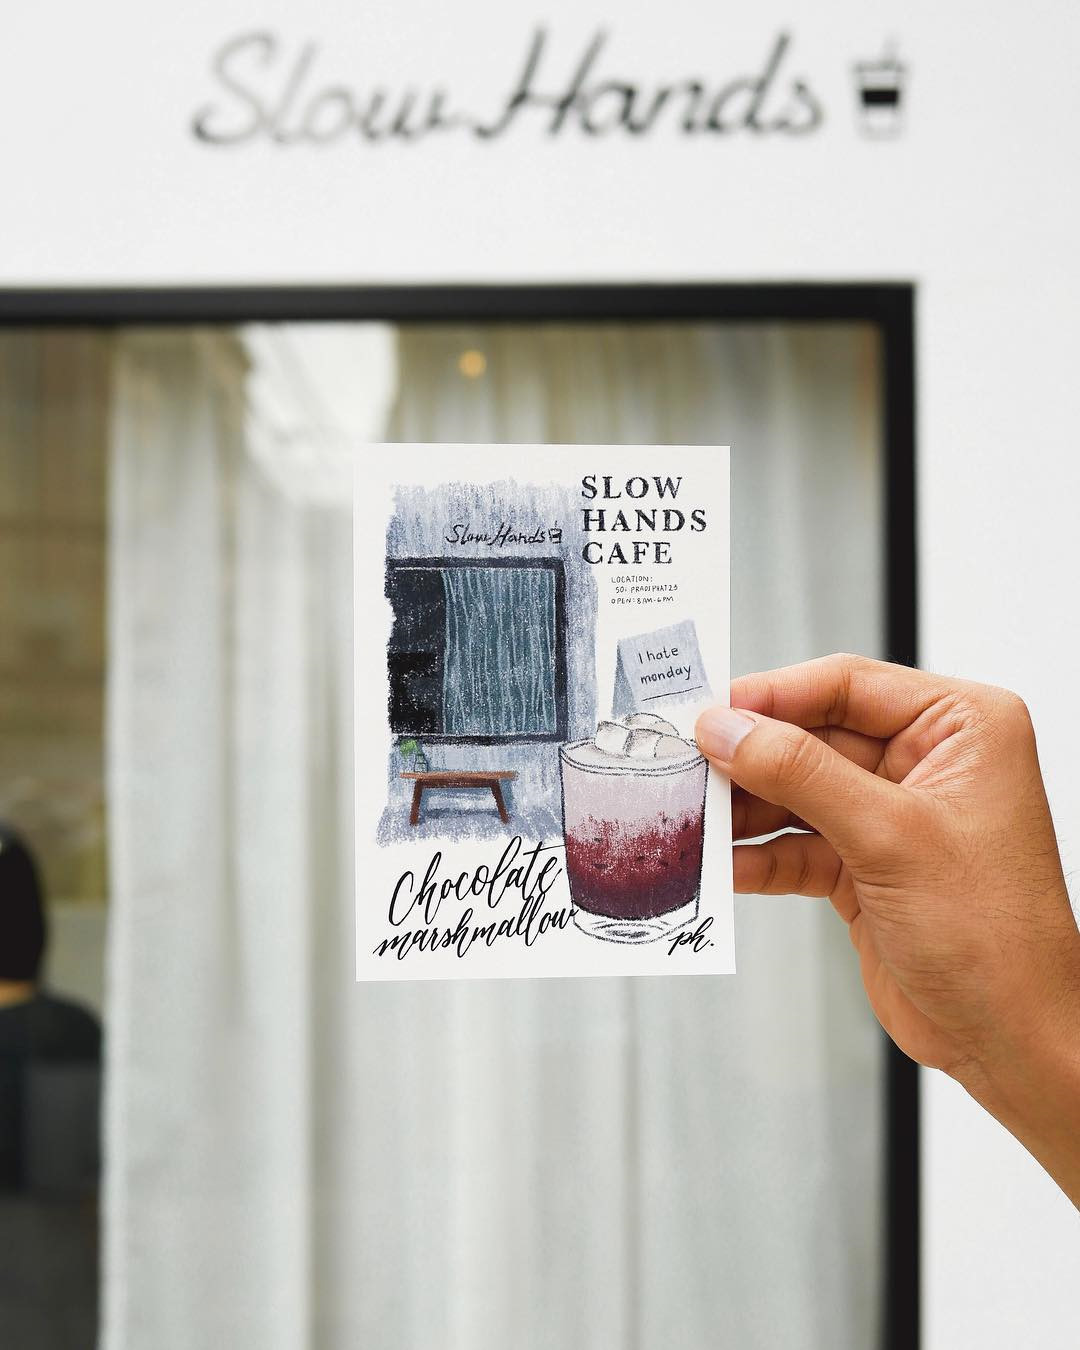 Slow Hands
SLOW
HANDS
CAFE
Slow Hands
LOCATION:
SOI PRADIPHAT23
OPEN: 8AM-6PM
I hate
monday
Chocolate
marshmallow
ph.